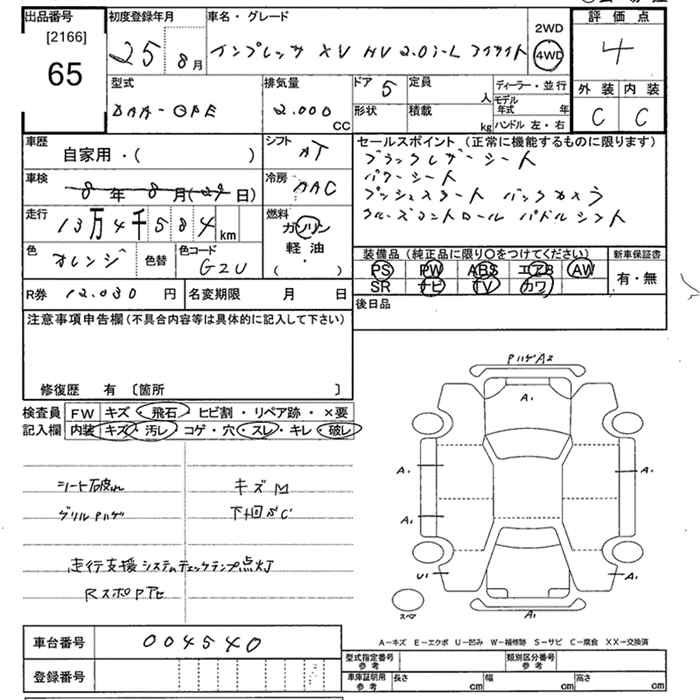 出品番号
[2166]
65
初度登録年月
25 8月
車名・グレード
インプレッサ XV HV 2.0i-L アイサイト
2WD
4WD
評価点
4
外装 内装
C C
型式
DAA-GPE
排気量
2.000 CC
ドア 5
定員 人
形状
積載 kg
ディーラー・並行
モデル年式 年
ハンドル 左・右
車歴
自家用・( )
シフト AT
セールスポイント (正常に機能するものに限ります)
ブラックレザーシート
パワーシート
プッシュスタート バックカメラ
クルーズコントロール パドルシフト
車検
8年 8月(29日)
冷房 AAC
走行
13万4千584km
燃料
ガソリン
軽油
( ・ )
色
オレンジ
色替
色コード
G2U
装備品 (純正品に限り○をつけてください)
新車保証書
PS PW ABS エアB AW
SR ナビ TV カワ
有・無
R券 12.030 円
名変期限 月 日
後日品
注意事項申告欄 (不具合内容等は具体的に記入して下さい)
修復歴 有 〔箇所 〕
検査員
記入欄
FW キズ・飛石 ヒビ割・リペア跡・×要
内装 キズ・汚レ コゲ・穴・スレ・キレ・破レ
シート破れ
キズM
グリルPハゲ
下回サC
走行支援システムチェックランプ点灯
RスポPアセ
PハゲA2
A1
A1
A1
A1
U1
A1
A1
スペア
A-キズ E-エクボ U-凹み W-補修跡 S-サビ C-腐食 XX-交換済
車台番号
004540
登録番号
型式指定番号
参考
類別区分番号
参考
車庫証明用
参考
長さ cm
幅 cm
高さ cm